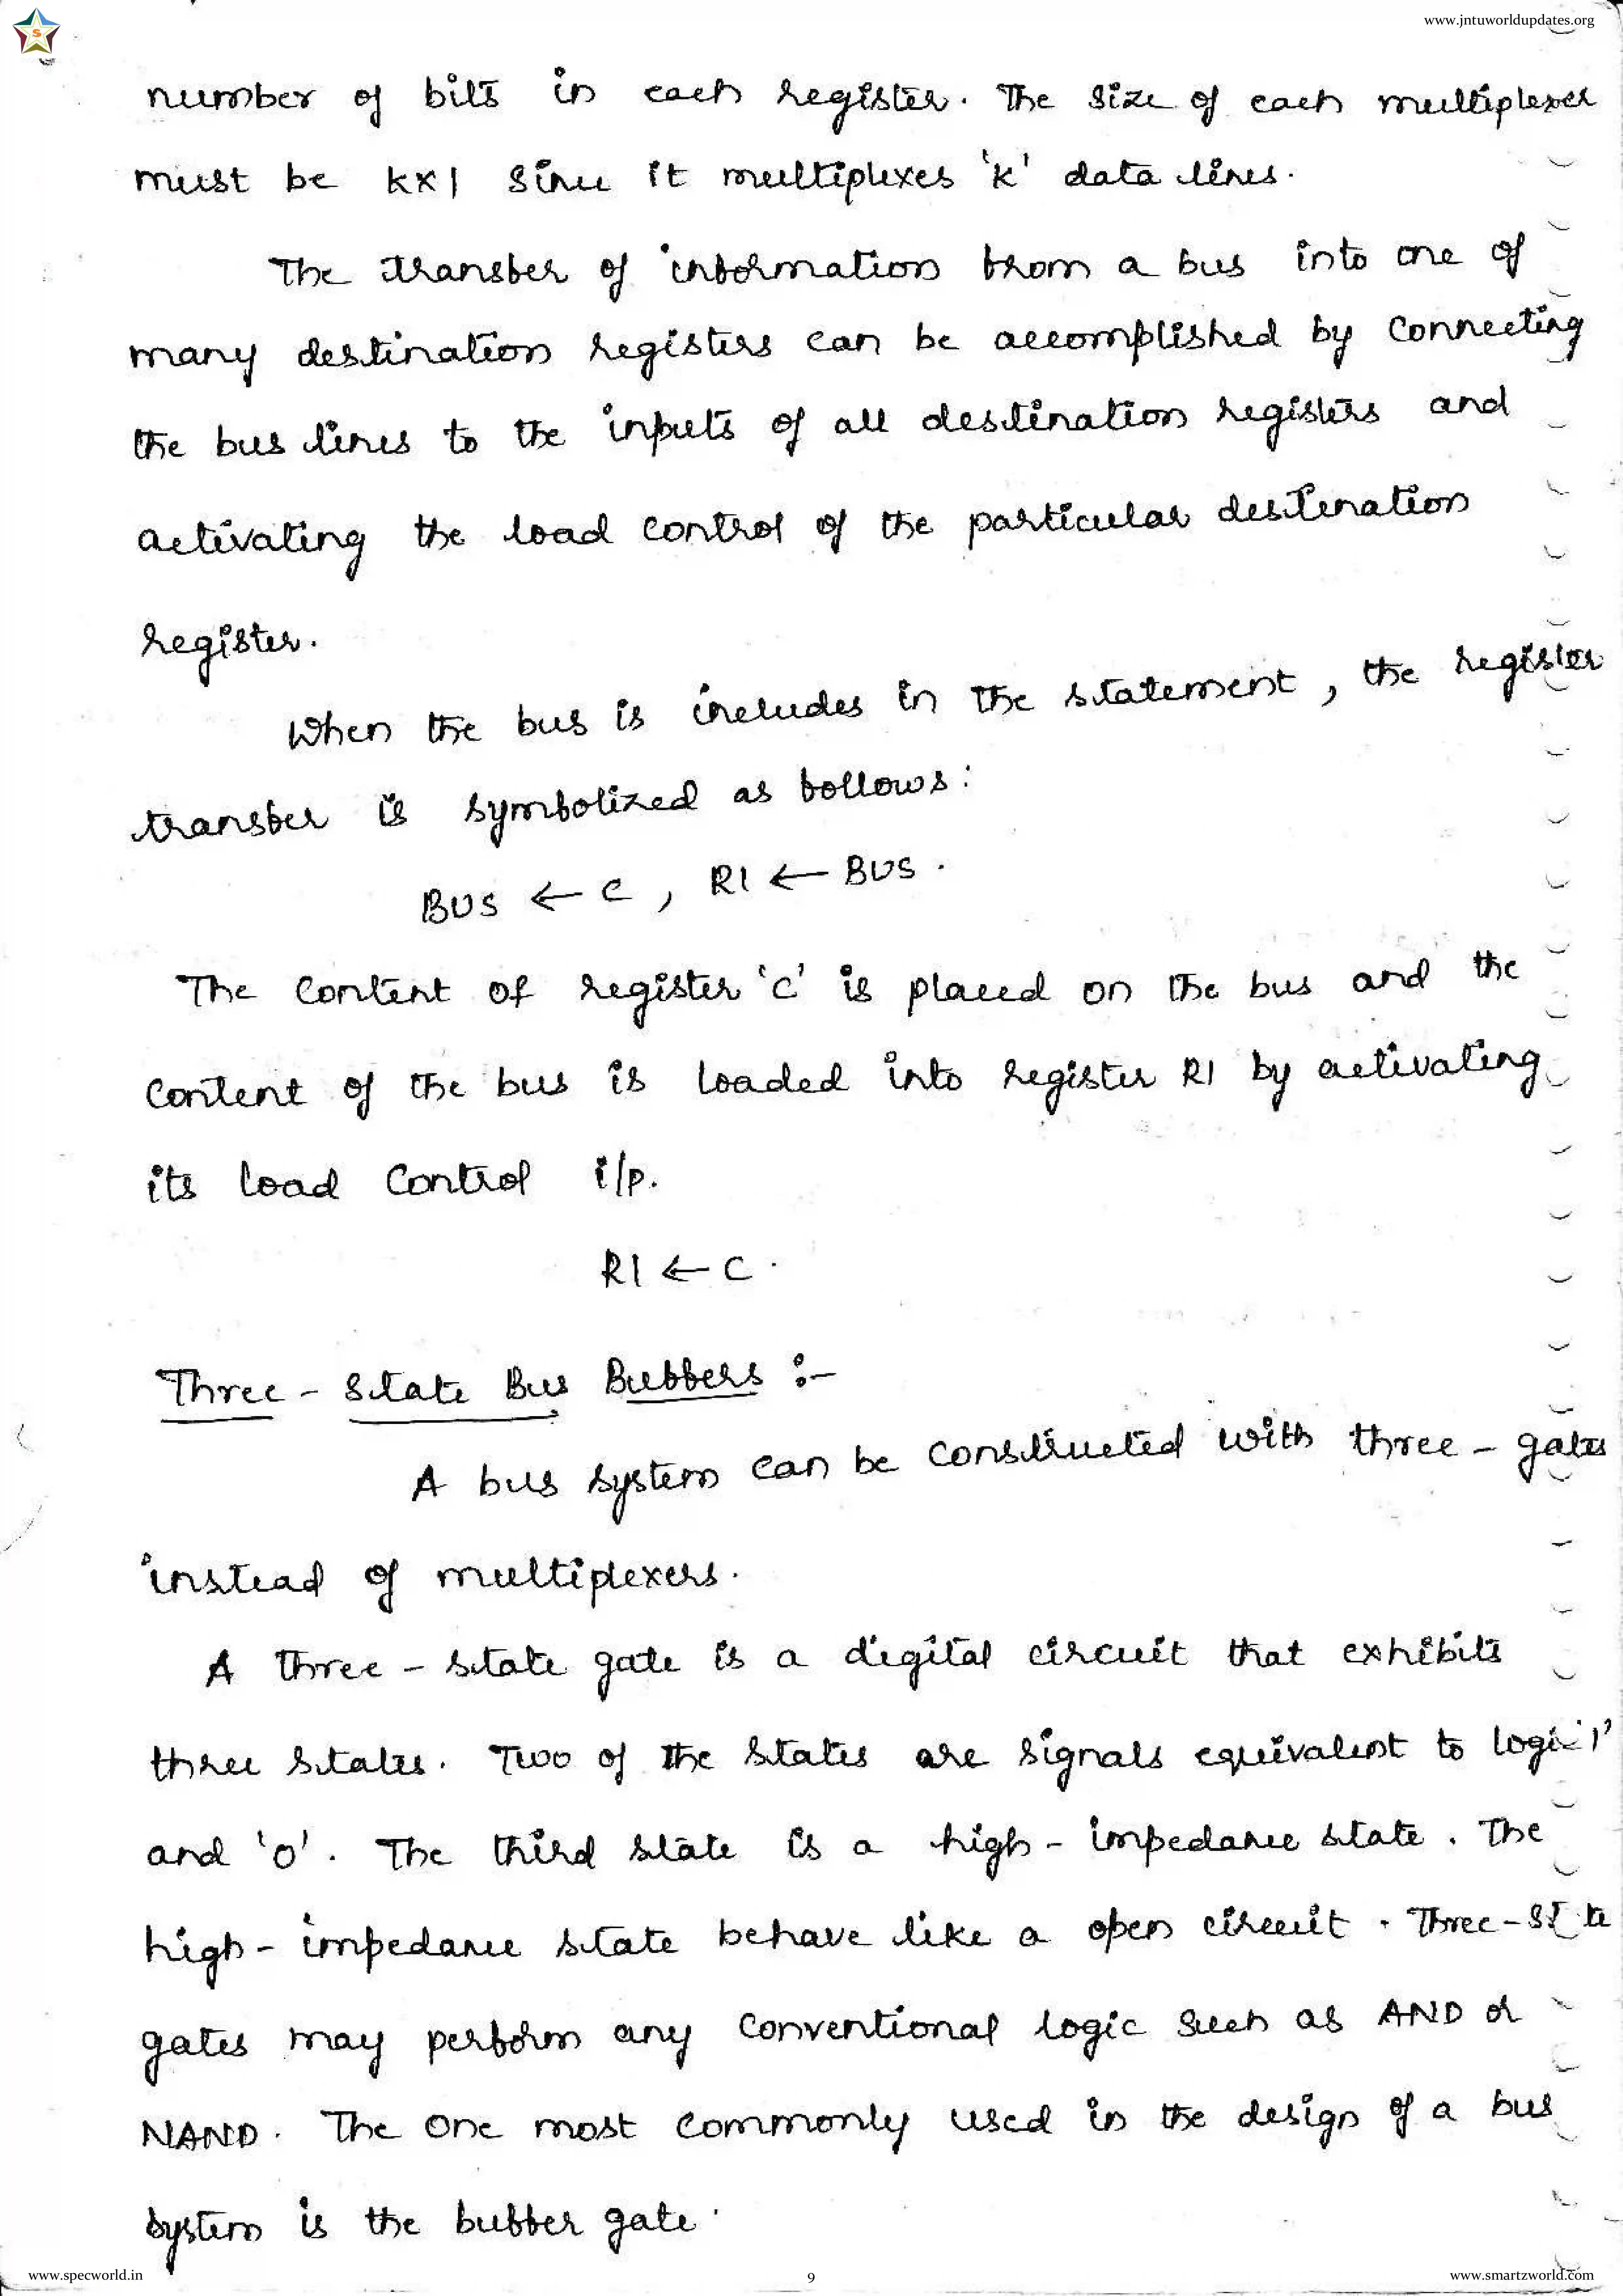 www.jntuworldupdates.org
S
number of bits in each register. The size of each multiplexer
must be kx1 since it multiplexes 'k' data lines.
The transfer of information from a bus into one of
many destination registers can be accomplished by connecting
the bus lines to the inputs of all destination registers and
activating the load control of the particular destination
register.
When the bus is includes in the statement, the register
transfer is symbolized as follows:
BUS ← C, R1 ← BUS.
The content of register 'C' is placed on the bus and the
content of the bus is loaded into register R1 by activating
its load control i/p.
R1 ← C.
Three - State Bus Buffers :-
A bus system can be constructed with three - gates
instead of multiplexers.
A three - state gate is a digital circuit that exhibits
three states. Two of the states are signals equivalent to logic '1'
and '0'. The third state is a high - impedance state. The
high - impedance state behave like a open circuit. Three - state
gates may perform any conventional logic such as AND or
NAND. The one most commonly used in the design of a bus
system is the buffer gate.
www.specworld.in
9
www.smartzworld.com